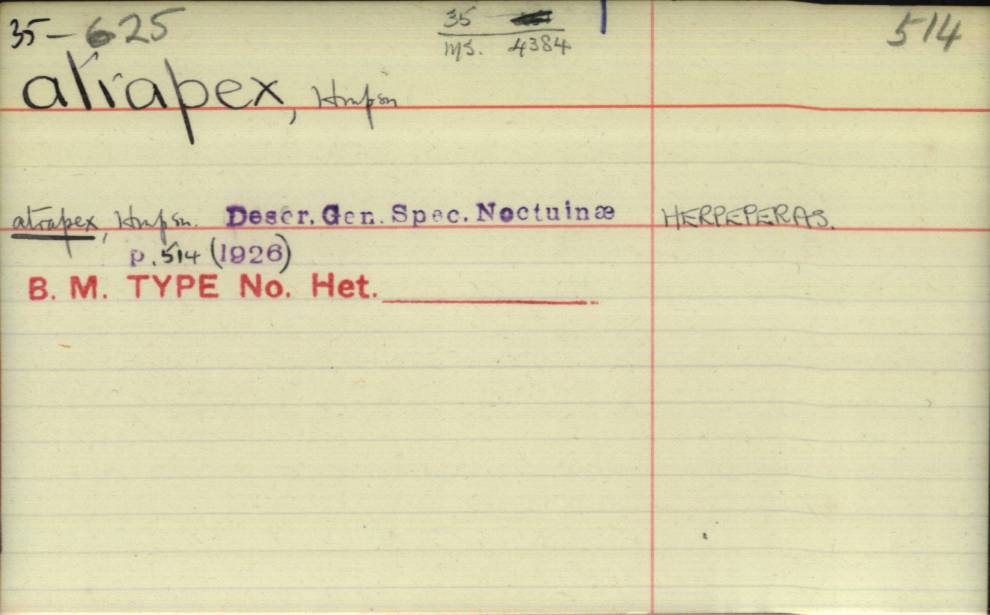 35-625 35 514
MS. 4384
atrapex, Hmpsn
atrapex, Hmpsn. Descr. Gen. Spec. Noctuinæ HERPEPERAS.
p. 514 (1926)
B. M. TYPE No. Het.